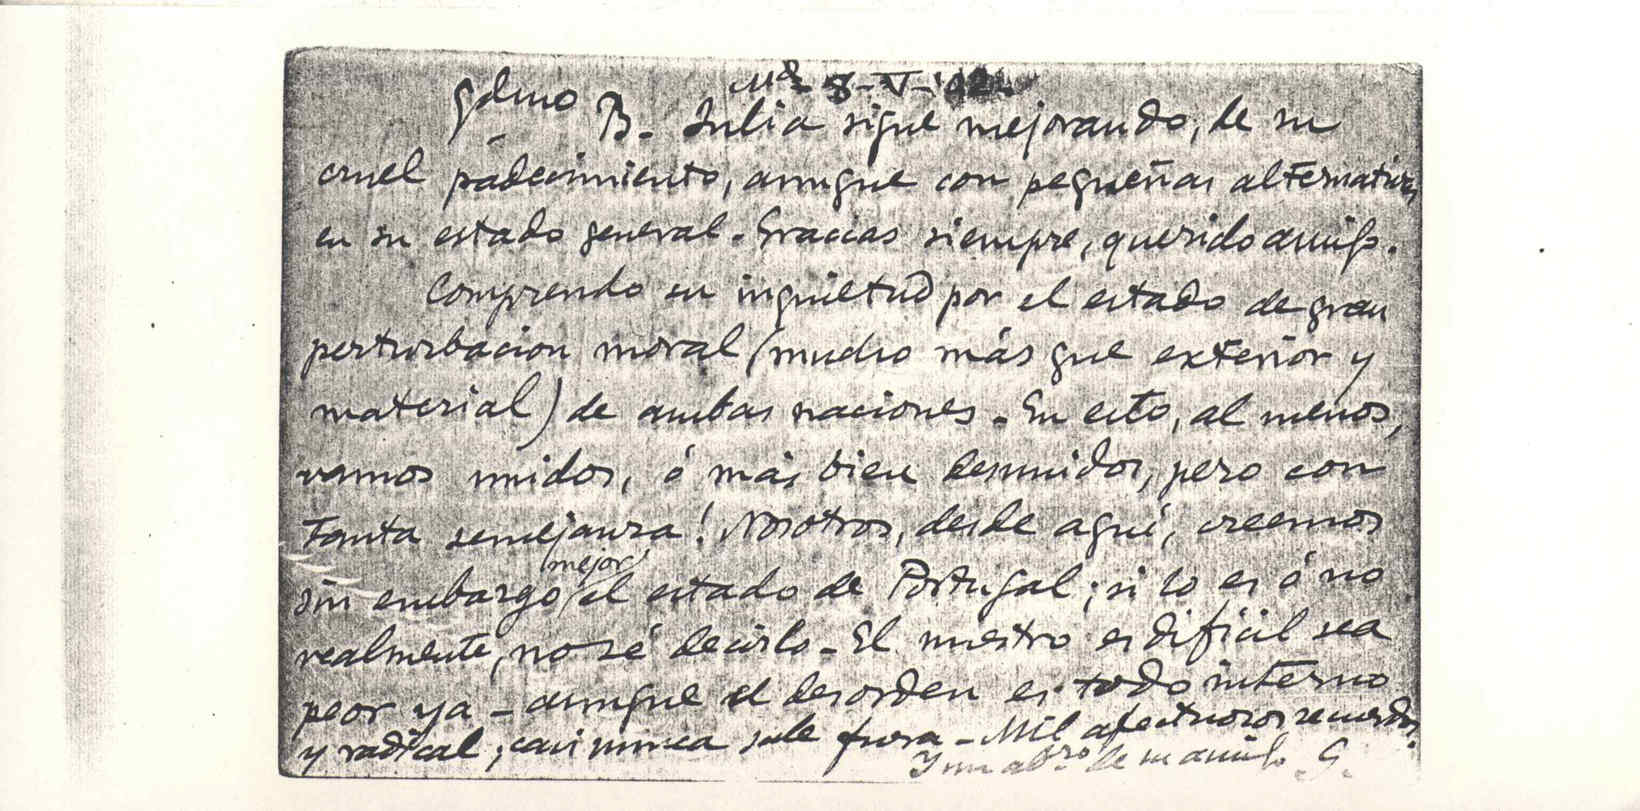 Md. 8-V-'12.
Qdmo B. Julia sigue mejorando, de su
cruel padecimiento, aunque con pequeñas alternativas
en su estado general. Gracias siempre, querido amigo.
Comprendo su inquietud por el estado de gran
perturbacion moral (mucho más que exterior y
material) de ambas naciones. En esto, al menos,
vamos unidos, ó más bien desunidos, pero con
tanta semejanza! Nosotros, desde aquí, creemos
mejor
sin embargo el estado de Portugal; si lo es ó no
realmente, no sé decirlo. El nuestro es dificil sea
peor ya - aunque el desorden es todo interno
y radical; casi nunca sale fuera. Mil afectuosos recuerdos
y un abzo de su amigo. G.